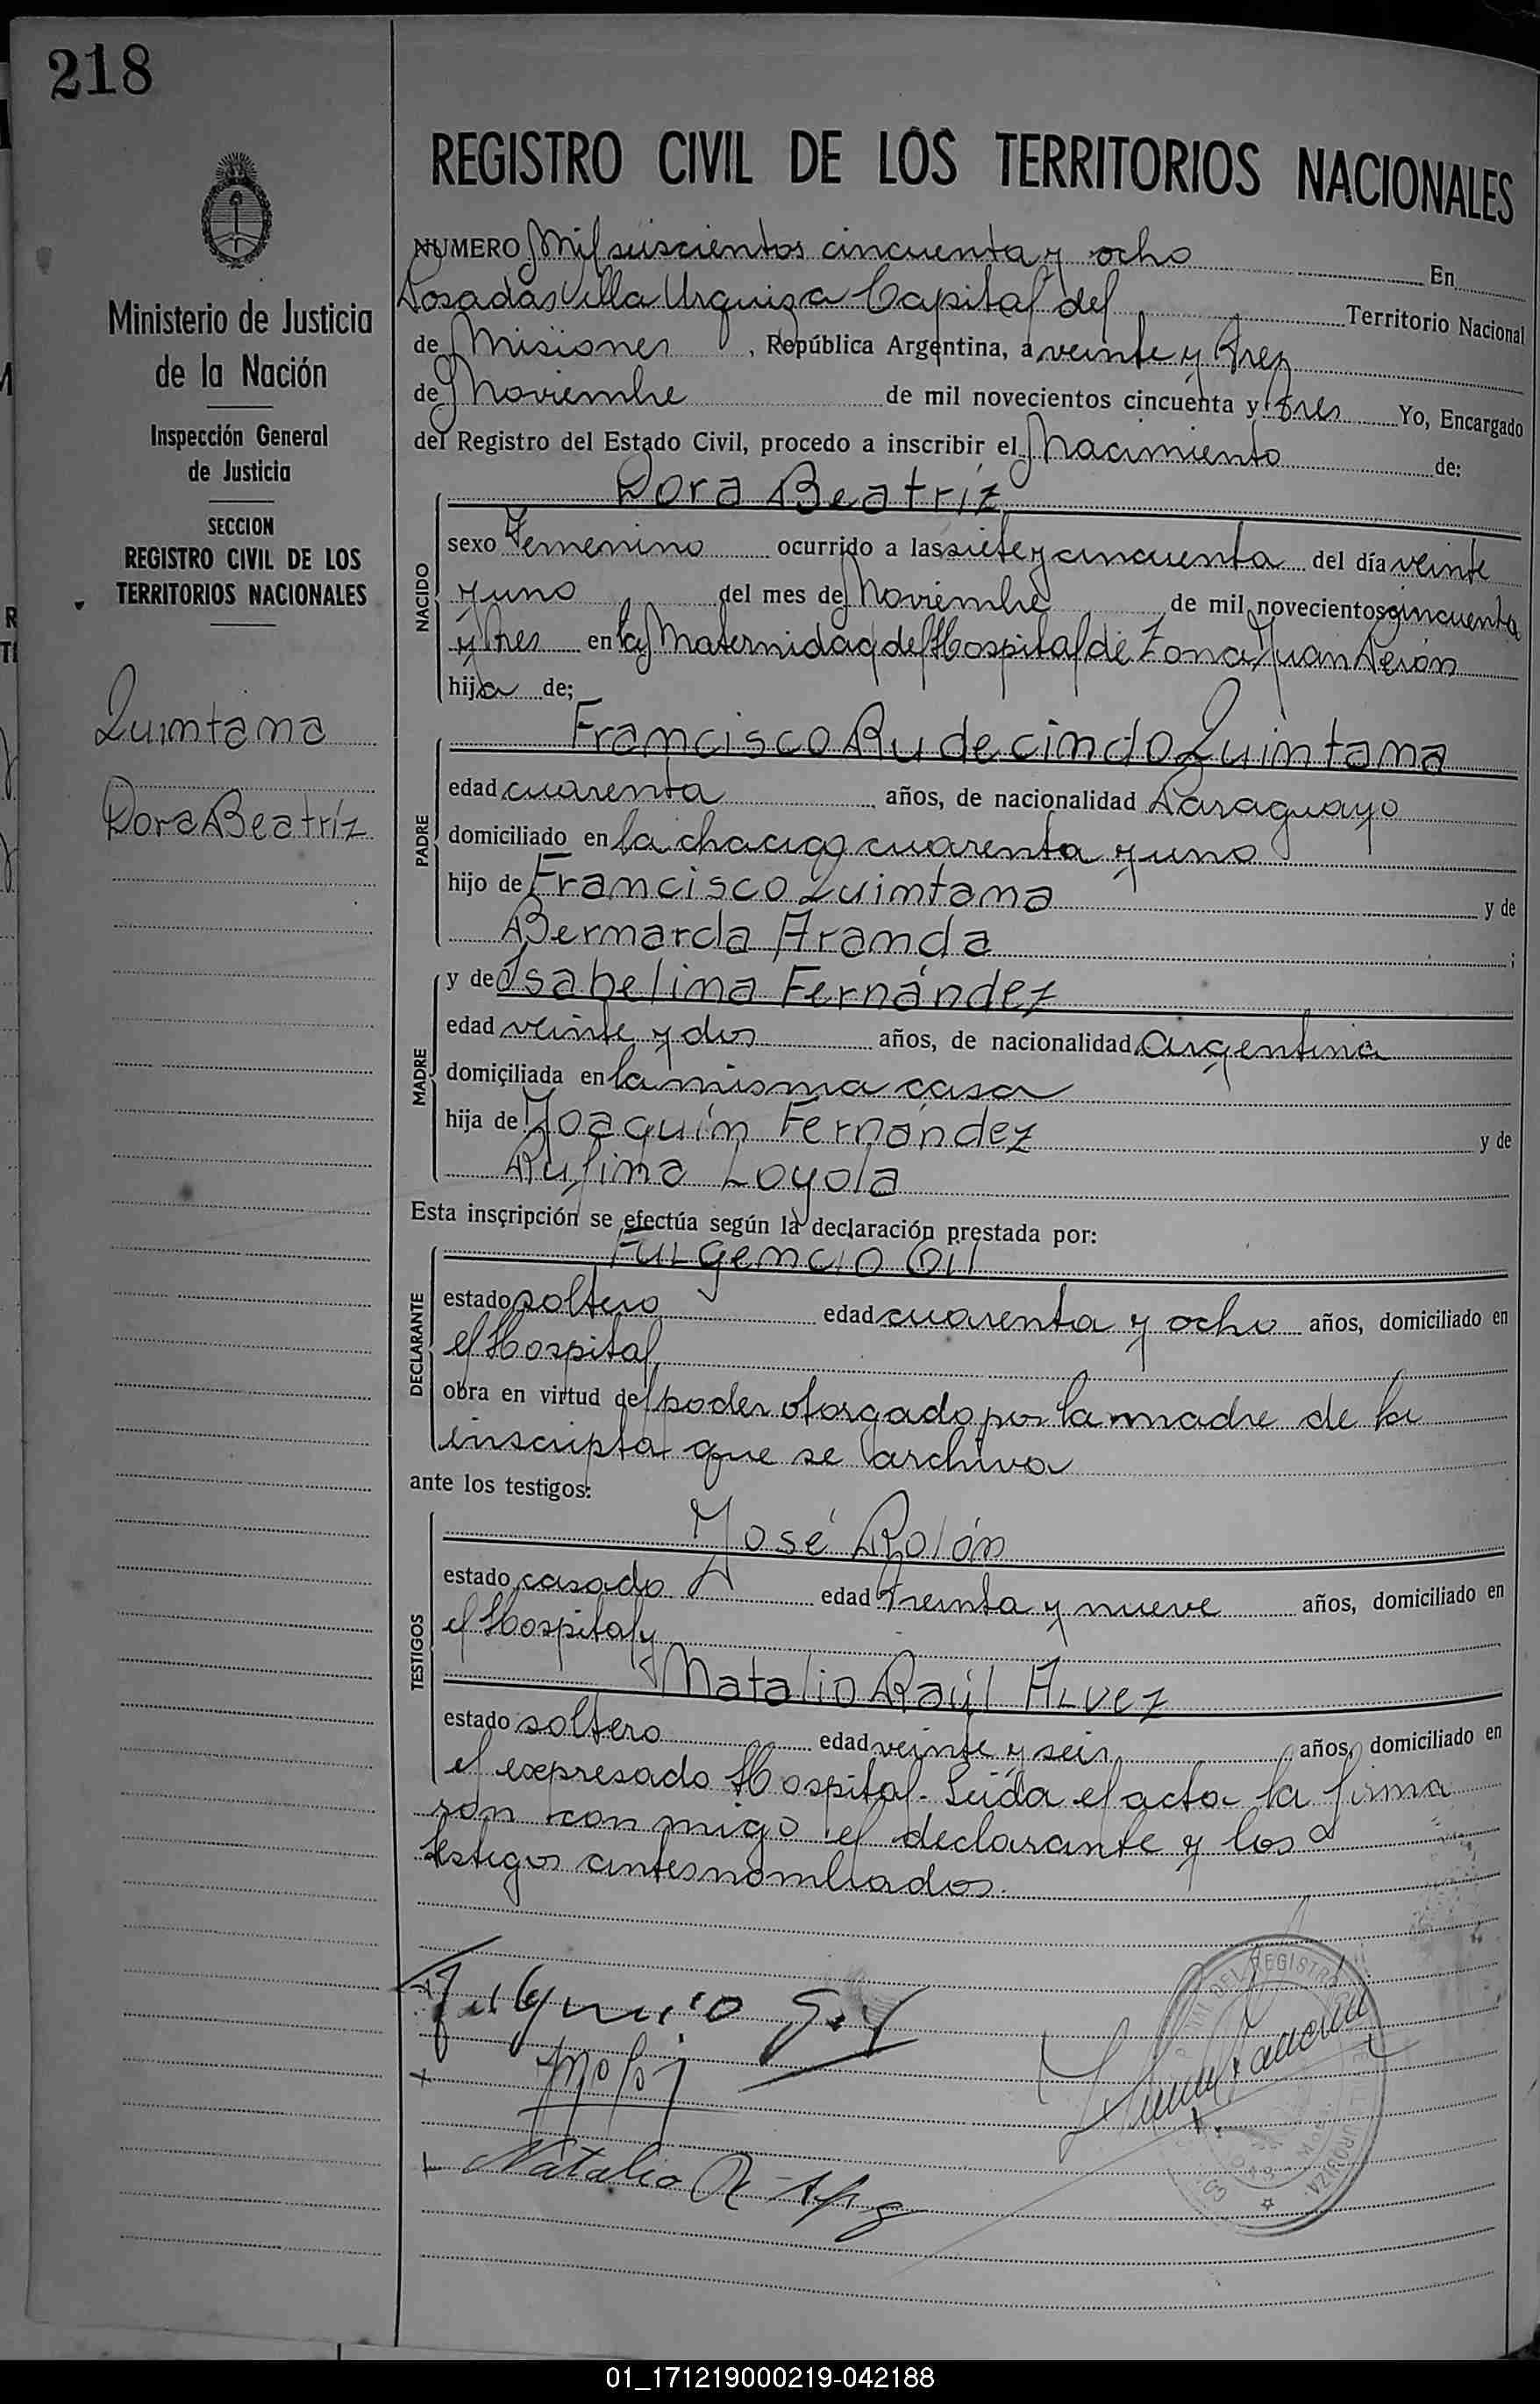 218
REGISTRO CIVIL DE LOS TERRITORIOS NACIONALES
Ministerio de Justicia
de la Nación
Inspección General
de Justicia
SECCION
REGISTRO CIVIL DE LOS
TERRITORIOS NACIONALES
Quintana
Dora Beatríz
NUMERO Mil seiscientos cincuenta y ocho En
Posadas Villa Urquiza Capital del Territorio Nacional
de Misiones, República Argentina, a veinte y tres
de Noviembre de mil novecientos cincuenta y tres Yo, Encargado
del Registro del Estado Civil, procedo a inscribir el Nacimiento de:
Dora Beatríz
NACIDO
sexo Femenino ocurrido a las siete y cincuenta del día veinte
y uno del mes de Noviembre de mil novecientos cincuenta
y tres en la Maternidad del Hospital de Zona Juan Perón
hija de;
PADRE
Francisco Rudecindo Quintana
edad cuarenta años, de nacionalidad Paraguayo
domiciliado en la chacra cuarenta y uno
hijo de Francisco Quintana y de
Bernarda Aranda ;
MADRE
y de Isabelina Fernández
edad veinte y dos años, de nacionalidad Argentina
domiciliada en la misma casa
hija de Joaquín Fernández y de
Rufina Loyola
Esta inscripción se efectúa según la declaración prestada por:
DECLARANTE
Fulgencio Gil
estado soltero edad cuarenta y ocho años, domiciliado en
el Hospital
obra en virtud del poder otorgado por la madre de la
inscripta que se archiva
ante los testigos:
TESTIGOS
José Rolón
estado casado edad treinta y nueve años, domiciliado en
el Hospital y
Natalio Raúl Alvez
estado soltero edad veinte y seis años, domiciliado en
el expresado Hospital. Leída el acta la firma
ron con migo el declarante y los
testigos antes nombrados.
Fulgencio Gil
Natalio R
DEL REGISTRO
URQUIZA
01_171219000219-042188